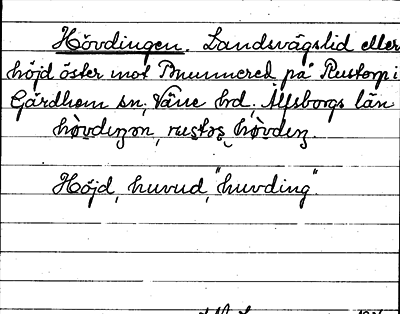 Hövdingen. Landsvägslid eller
höjd öster mot Brunnered på Rustorp i
Gärdhem sn, Väne hd. Älfsborgs län
hòvdeŋən, rustəs hòvdeŋ.
Höjd, huvud, "huvding".